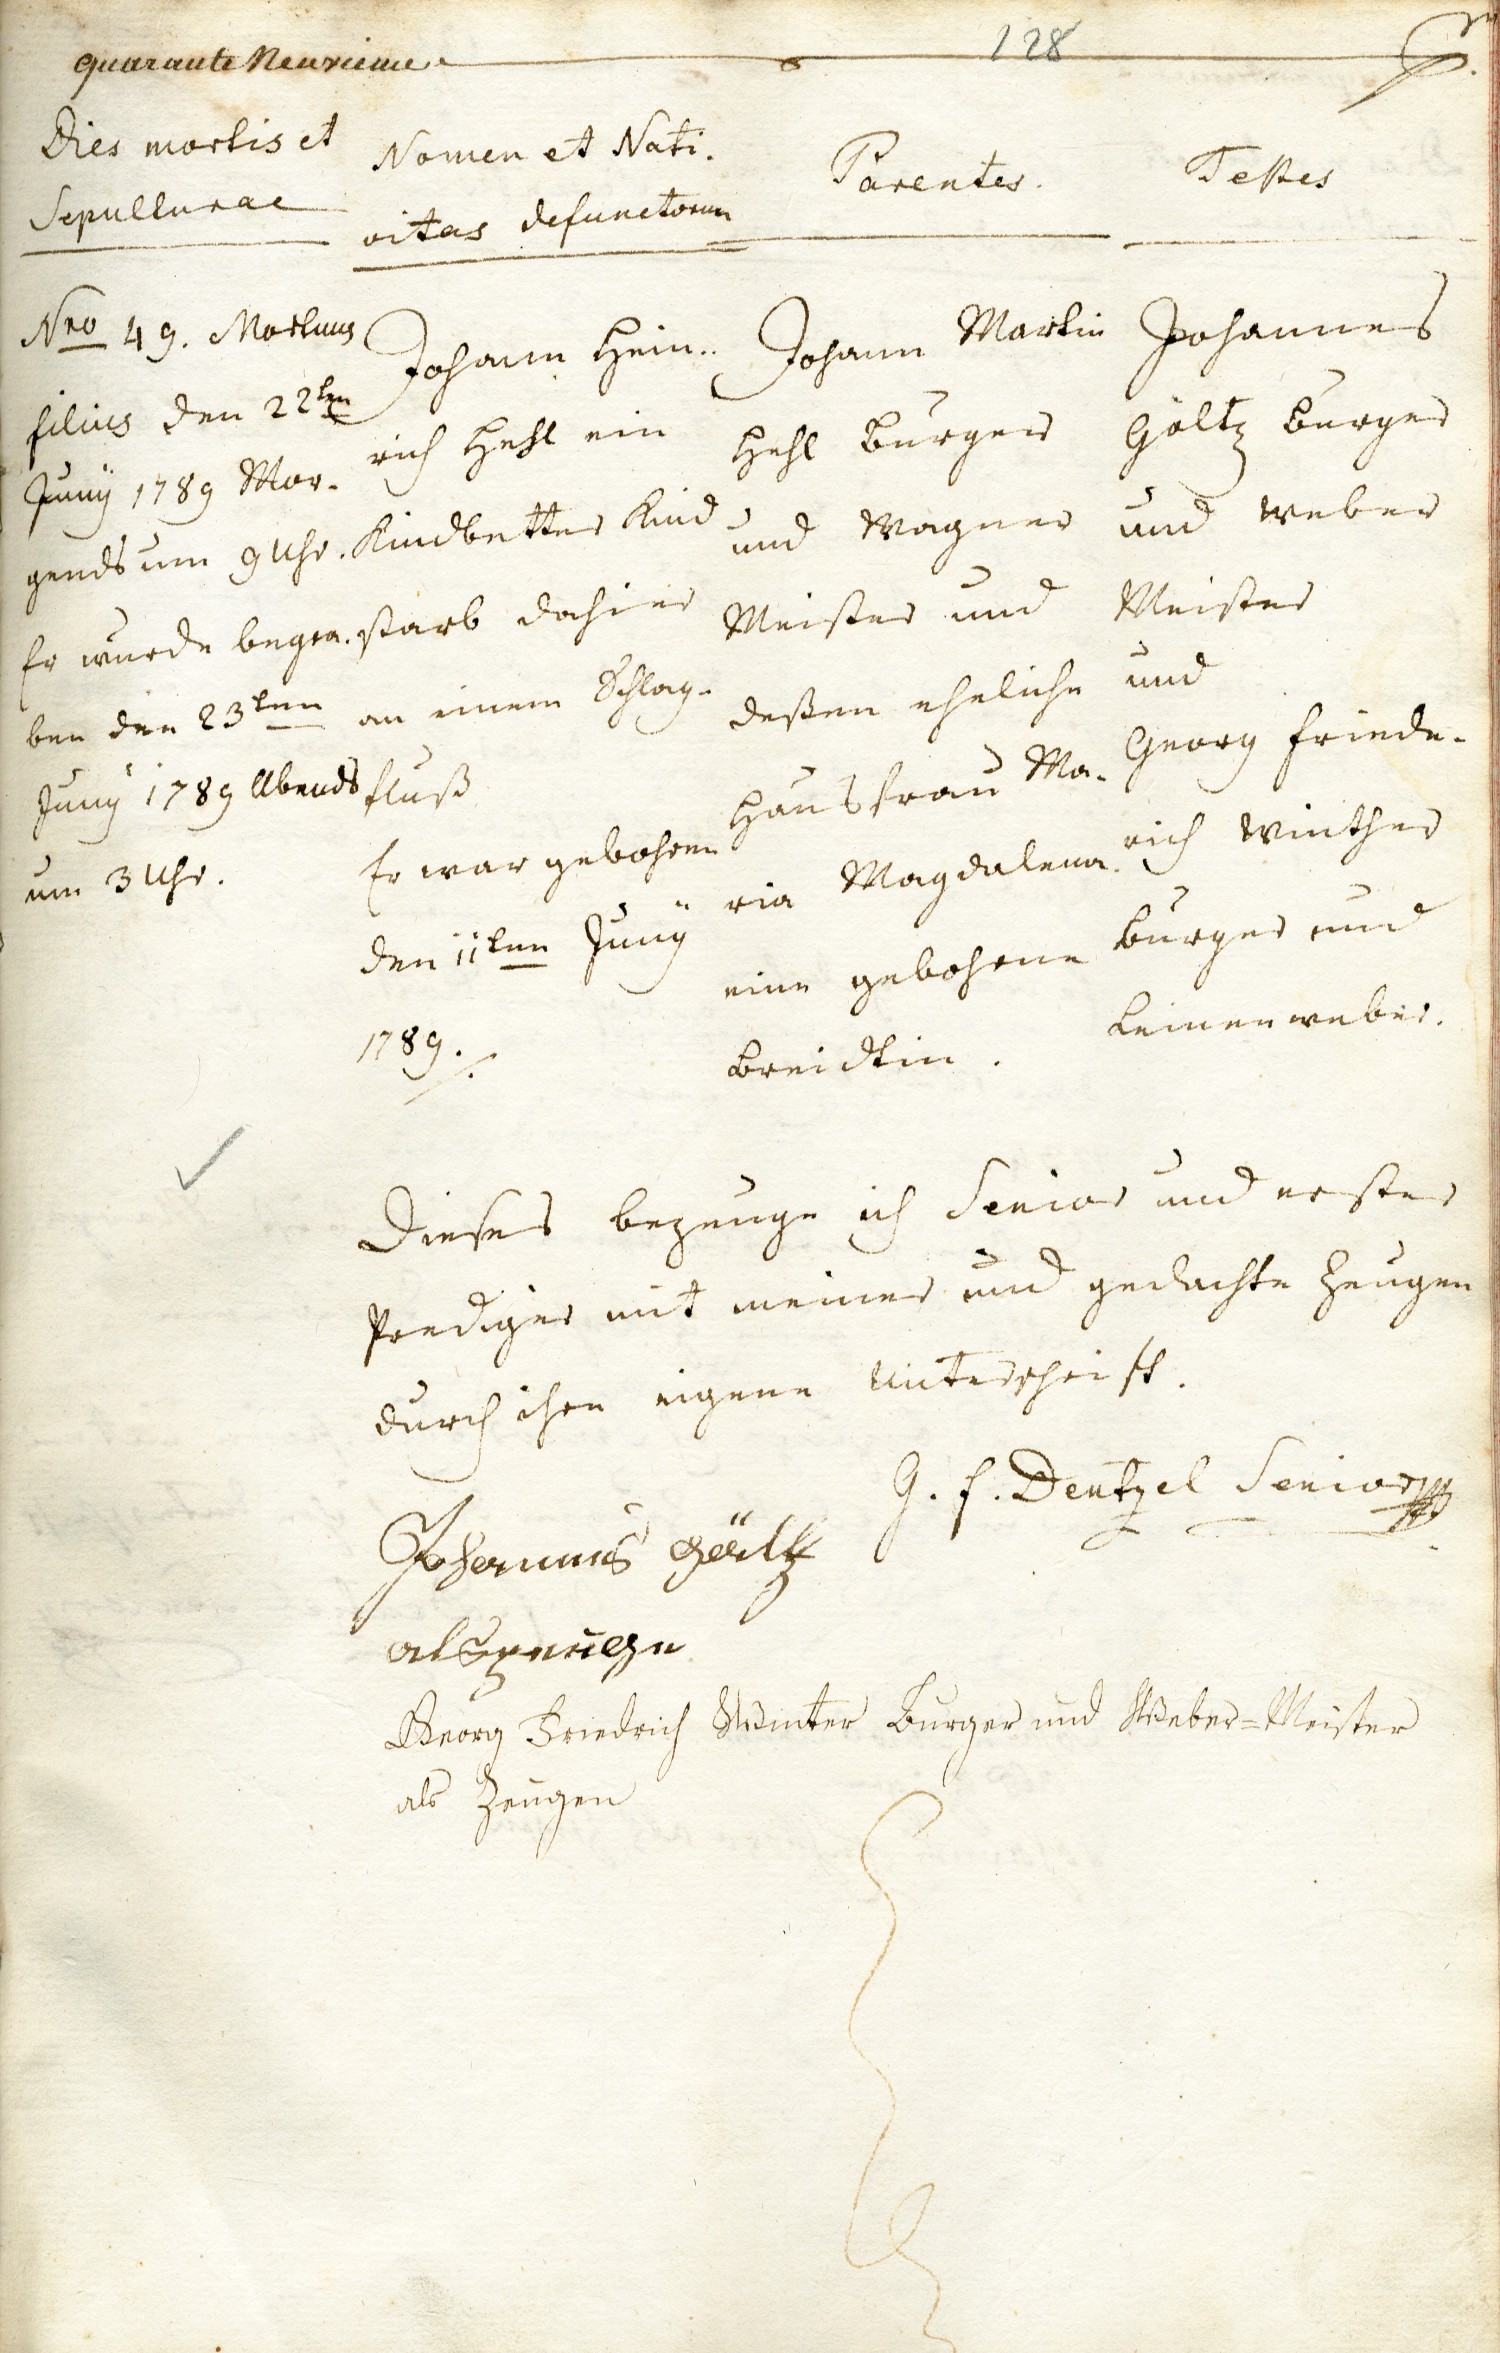 quarante Neuvieme
128
Dies mortis et
Sepulturae
Nro 49. Mortuus
filius den 22ten
Juny 1789 Mor-
gends um 9 Uhr.
Er wurde begra-
ben den 23ten
Juny 1789 Abends
um 3 Uhr.
Nomen et Nati-
vitas defunctorum
Johann Hein-
rich Hehl ein
Kindbetter Kind
starb dahier
an einem Schlag-
fluß
Er war gebohren
den 11ten Juny
1789.
Parentes.
Johann Martin
Hehl Burger
und Wagner
Meister und
deßen eheliche
Hausfrau Ma-
ria Magdalena
eine gebohrne
Breidtin.
Testes
Johannes
Göltz Burger
und Weber
Meister
und
Georg Friede-
rich Winther
Burger und
Leinenweber.
Dieses bezeuge ich Senior und erster
Prediger mit meiner und gedachte Zeugen
durch ihre eigene Unterschrift.
G. F. Dentzel Senior
Johannes Göltz
als zeuge
Georg Friedrich Winter Burger und Weber=Meister
als Zeugen